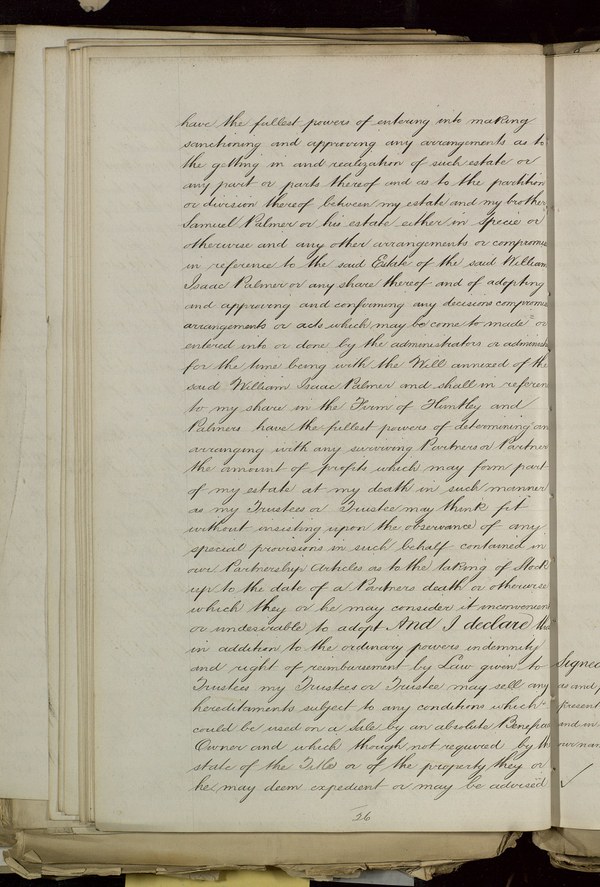 have the fullest powers of entering into making
sanctioning and approving any arrangements as to
the getting in and realization of such estate or
any part or parts thereof and as to the partition
or division thereof between my estate and my brother
Samuel Palmer or his estate either in specie or
otherwise and any other arrangements or compromise
in reference to the said Estate of the said William
Isaac Palmer or any share thereof and of adopting
and approving and confirming any decisions compromise
arrangements or acts which may be come to made or
entered into or done by the administrators or administ
for the time being with the Will annexed of the
said William Isaac Palmer and shall in referen
to my share in the Firm of Huntley and
Palmers have the fullest powers of determining an
arranging with any surviving Partners or Partner
the amount of profits which may form part
of my estate at my death in such manner
as my Trustees or Trustee may think fit
without insisting upon the observance of any
special provisions in such behalf contained in
our Partnership Articles as to the taking of Stock
up to the date of a Partners death or otherwise
which they or he may consider it inconvenien
or undesirable to adopt And I declare tha
in addition to the ordinary powers indemnity
and right of reimbursement by Law given to
Trustees my Trustees or Trustee may sell any
hereditaments subject to any conditions which
could be used on a Sale by an absolute Benefici
Owner and which though not required by th
state of the Title or of the property they or
he may deem expedient or may be advised
26
Signed
as and f
present
and in
our nam